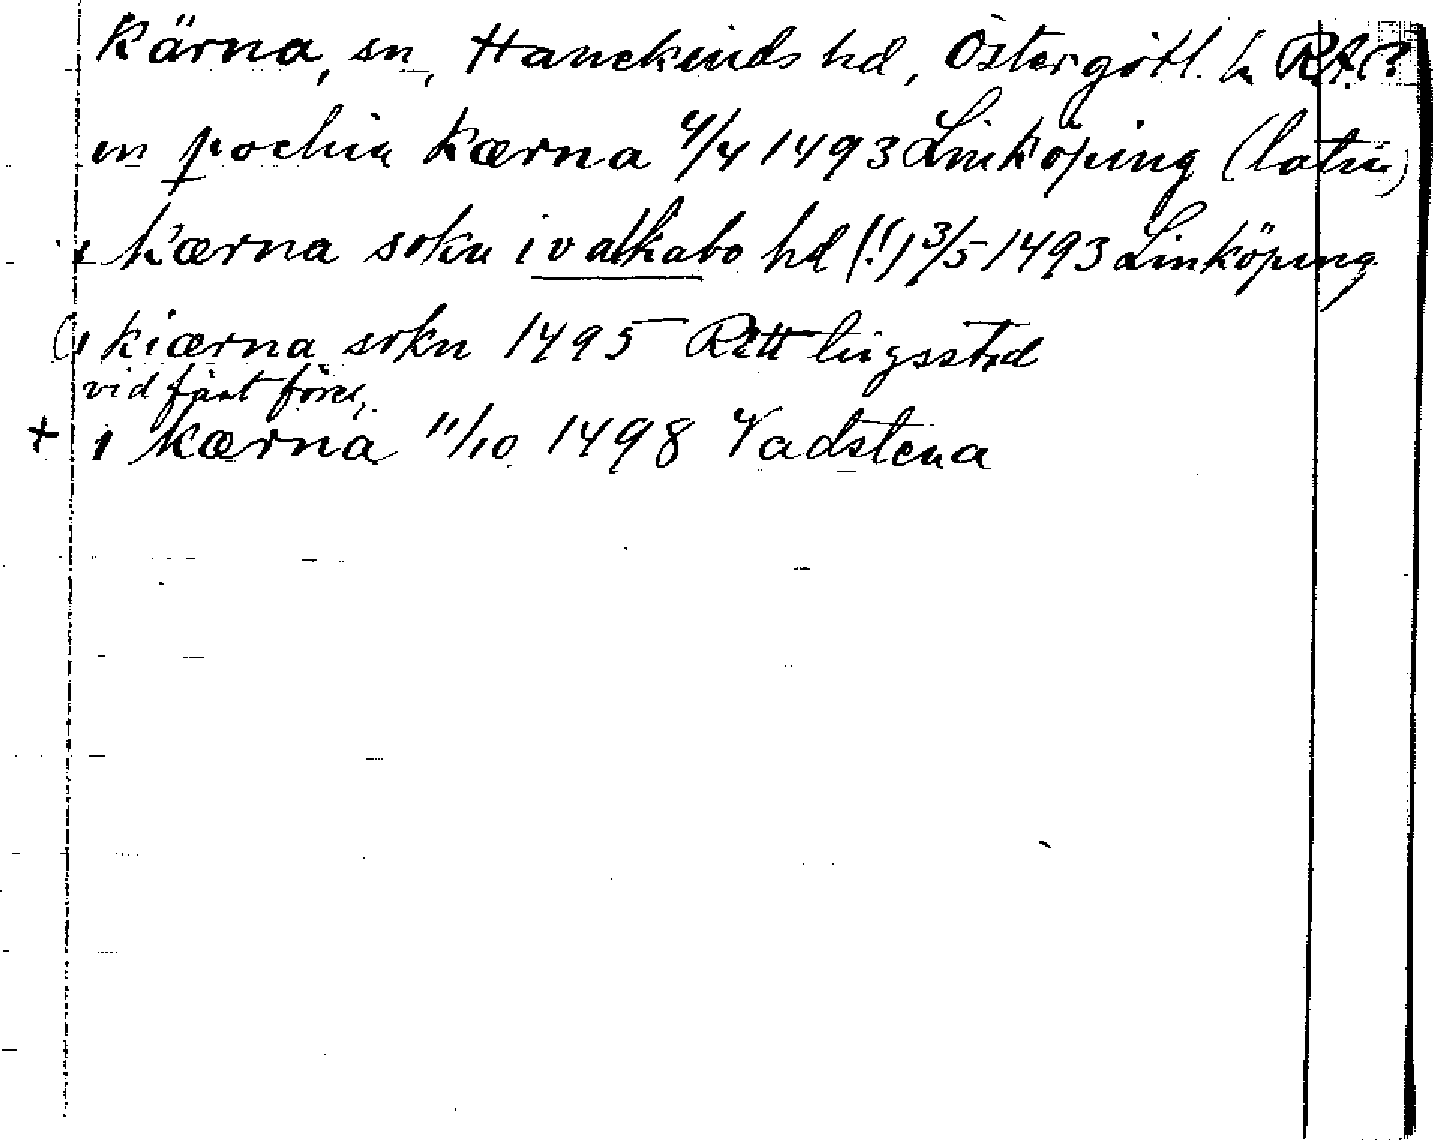 Kärna, sn, Hanekinds hd, Östergötl. L RA
in pochia kærna 4/4 1493 Linköping (latin)
i kærna sokn i valkabo hd (!) 3/5 1493 Linköping
(i kiærna sokn 1495 Rettlingsstad
vid fäst föreg.
+ i kærna 11/10 1498 Vadstena